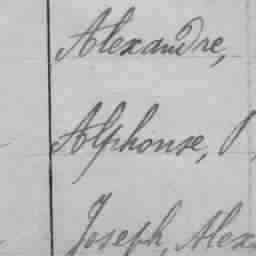 Alexandre,
Alphonse,
Joseph, Alex